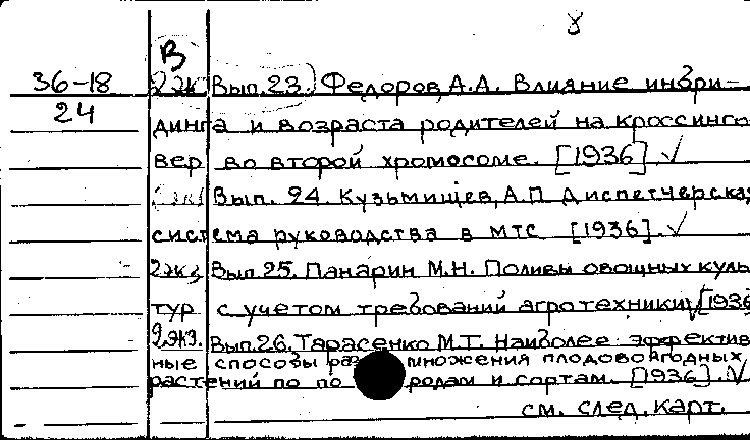 8
В
36-18 2 эк Вып. 23. Федоров, А.А. Влияние инбри-
24
динга и возраста родителей на кроссинго
вер во второй хромосоме. [1936] √
Вып. 24. Кузьмищев, А.П Диспетчерская
система руководства в мтс [1936]. √
2экз Вып. 25. Панарин М.Н. Поливы овощных куль
тур с учетом требований агротехники √ [1936
2.экз. Вып. 26. Тарасенко М.Т. Наиболее эффектив
ные способы размножения плодово-ягодных
растений по по родам и сортам. [1936]. √
см. след. карт.